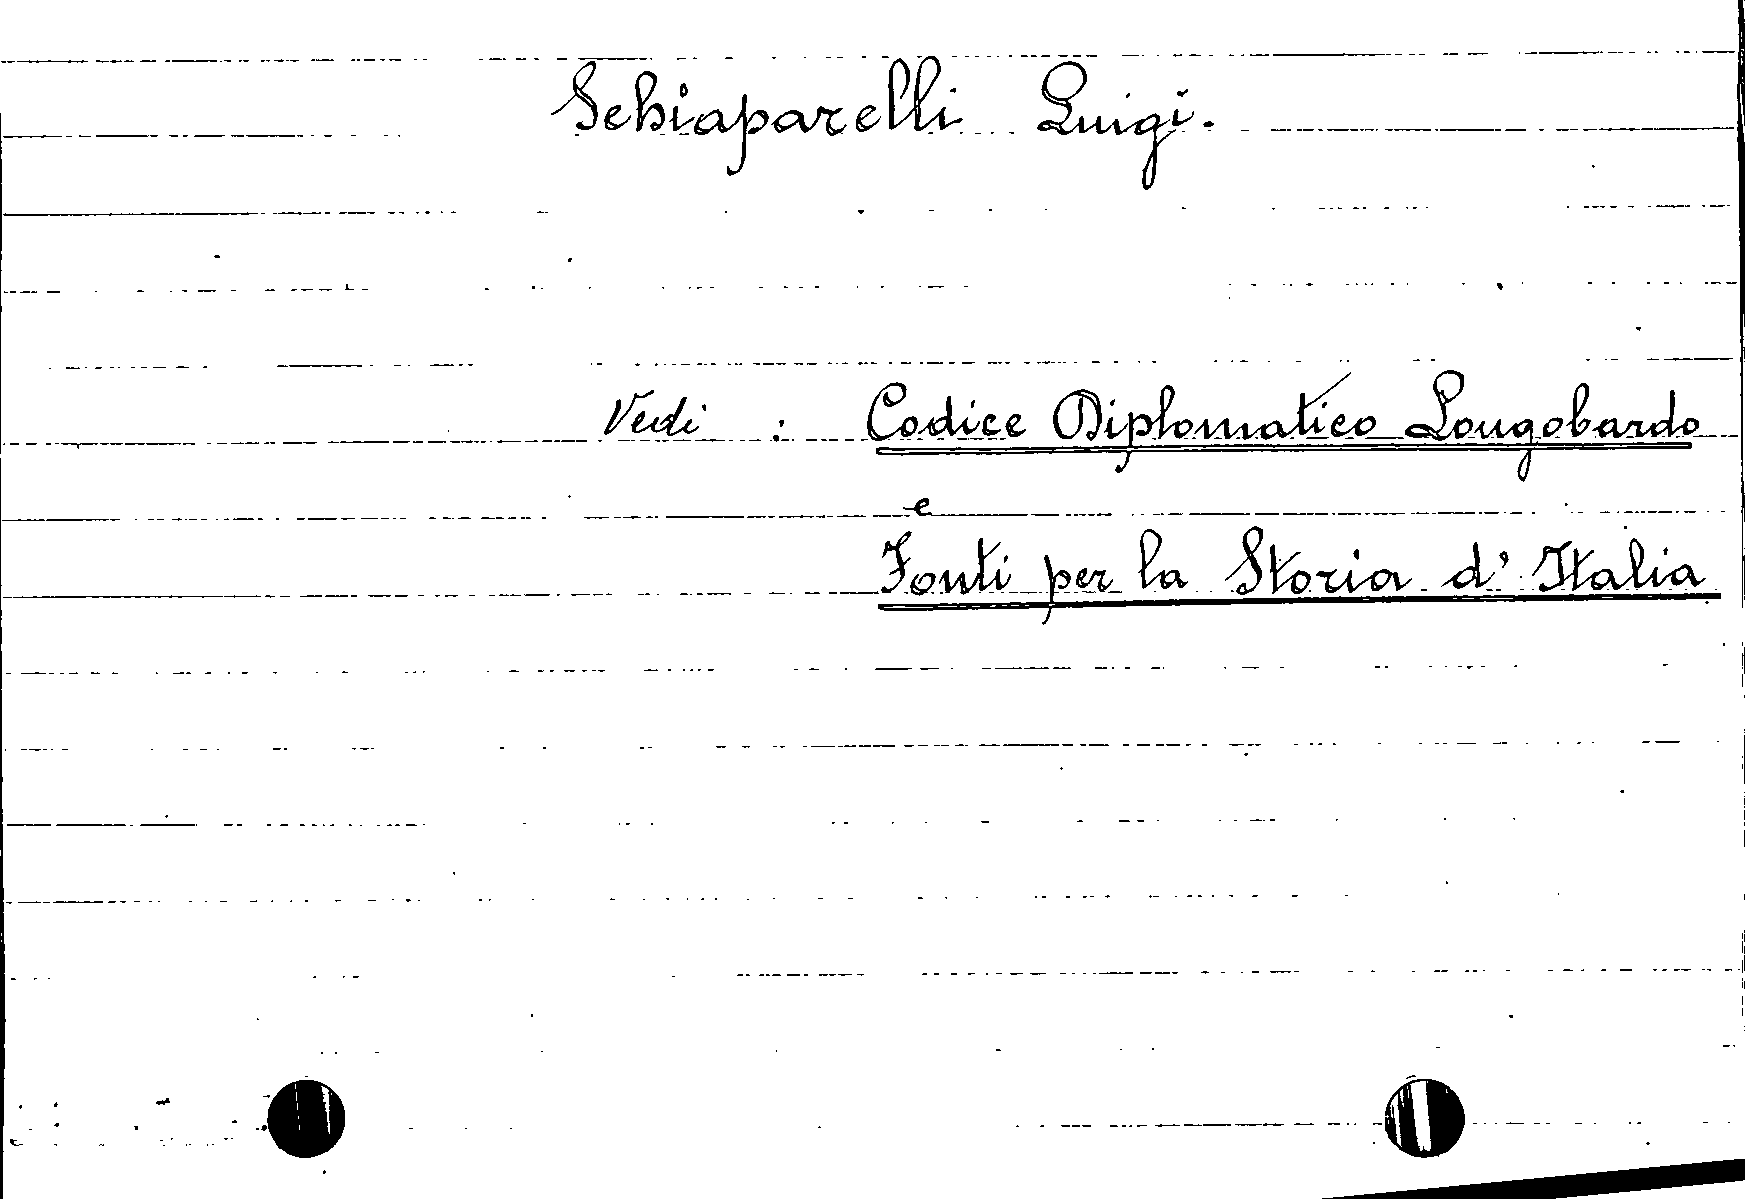 Schiaparelli Luigi.
Vedi : Codice Diplomatico Longobardo
e
Fonti per la Storia d' Italia